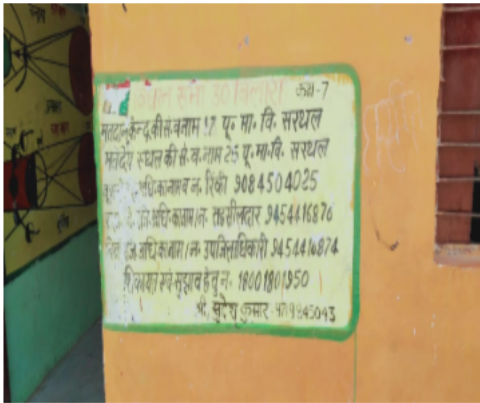 विधान सभा 30 बिलारी कक्ष-7
मतदान केन्द्र की सं. व नाम 17 पू. मा. वि. सरथल
मतदेय स्थल की सं. व. नाम 25 पू. मा. वि. सरथल
अधि. का नाम व न. रिंकी 9084504025
अधि. का नाम / न. तहसीलदार 9454416876
अधि. का नाम / न. उपजिलाधिकारी 9454416874
शिकायत एवं सुझाव हेतु न. 18001801950
श्री. सुदेश कुमार